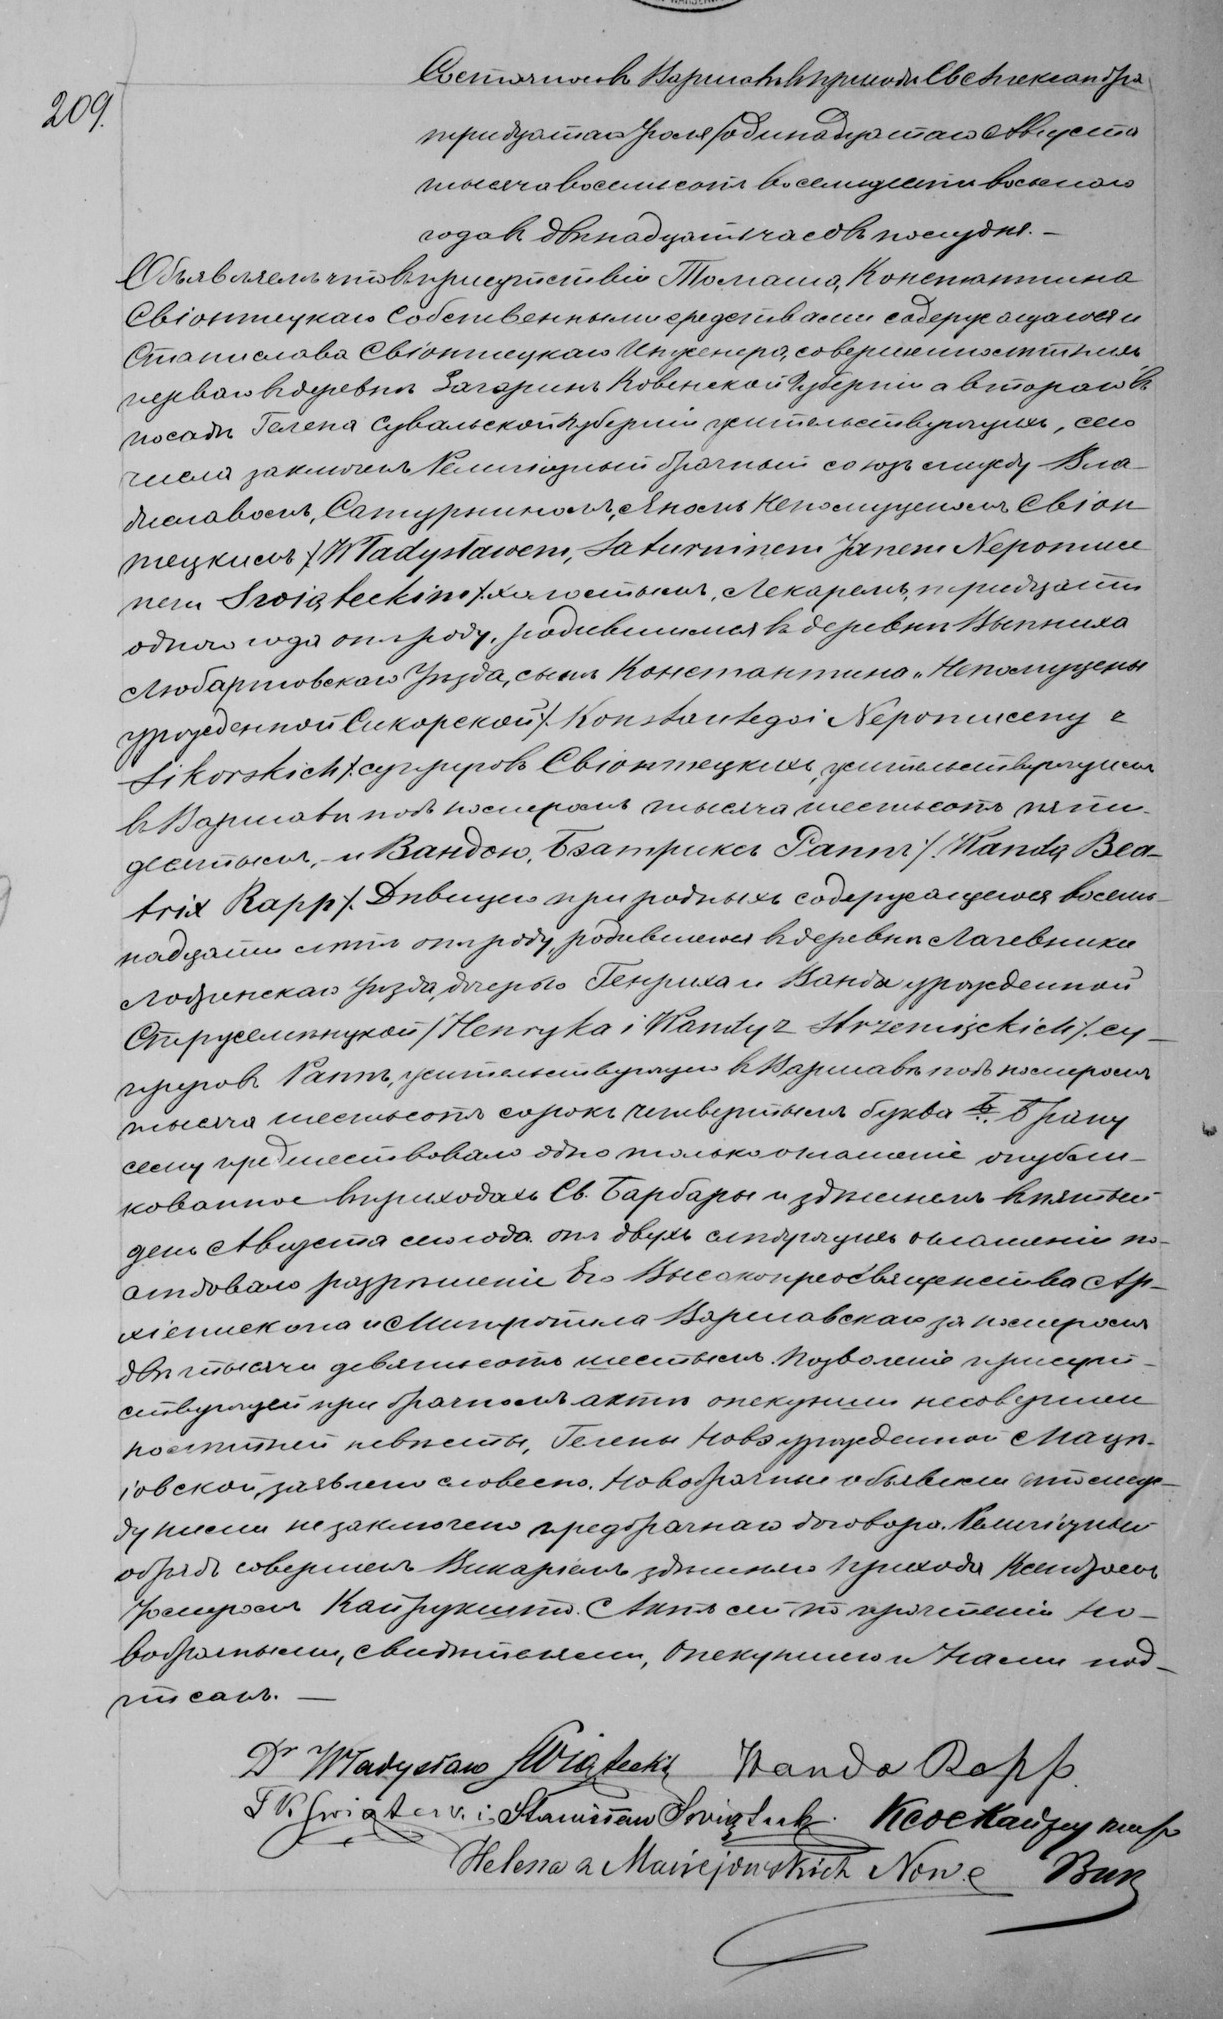 209.
Состоялось въ Варшавѣ въ приходѣ Св Александра
тридцатаго Іюля/одинадцатаго Августа
тысяча восемьсотъ восемьдесятъ восьмаго
года въ двѣнадцать часовъ пополудни. —
Объявляемъ что въ присутствіи Томаша, Константина
Свіонтецкаго собственными средствами содержащагося и
Станислава Свіонтецкаго Инженера, совершеннолѣтнихъ
перваго въ деревнѣ Загаринъ Ковенской Губерніи а втораго въ
посадѣ Гелена Сувальской Губерніи жительствующихъ, сего
числа заключенъ Религіозный брачный союзъ между Вла-
диславомъ, Сатурниномъ, Яномъ Непомуценомъ Свіон
тецкимъ /Władysławem, Saturninem Janem Nepomuce
nem Swiąteckim/ холостымъ, Лекаремъ, тридцати
одного года отъ роду, родившимся въ деревнѣ Выпниха
Любартовскаго Уѣзда, сыномъ Константина и Непомуцены
урожденной Сикорской /Konstantego i Nepomuceny z
Sikorskich/ супруговъ Свіонтецкихъ, жительствующимъ
въ Варшавѣ подъ номеромъ тысяча шестьсотъ пяти-
десятымъ, — и Вандою, Беатриксъ Раппъ /Wandą Bea-
trix Rapp/. Дѣвицею при родныхъ содержащеюся восем-
надцати лѣтъ отъ роду, родившеюся въ деревнѣ Лагевники
Лодзинскаго Уѣзда, дочерью Генриха и Ванды урожденной
Стржемѣнцкой /Henryka i Wandy z Strzemięckich/ су-
пруговъ Раппъ, жительствующею въ Варшавѣ подъ номеромъ
тысяча шестьсотъ сорокъ четвертымъ буква Б. Браку
сему предшествовало одно только оглашеніе опубли-
кованное въ приходахъ Св. Барбары и здѣшнемъ въ пятый
день Августа сего года. отъ двухъ слѣдующихъ оглашеній по-
слѣдовало разрѣшеніе Его Высокопреосвященства Ар-
хіепископа и Митрополита Варшавскаго за номеромъ
двѣ тысячи девятьсотъ шестымъ. Позволеніе присут-
ствующей при брачномъ актѣ опекунши несовершен
нолѣтней невѣсты, Гелены Новэ урожденной Мацѣ-
іовской, заявлено словесно. Новобрачные объявили что меж-
ду ними не заключено предбрачнаго договора. Религіозный
обрядъ совершенъ Викаріемъ здѣшняго прихода Ксендзомъ
Кайрукшто. Актъ сей по прочтеніи но-
вобрачными, свидѣтелями, опекуншею и Нами под-
писанъ. —
Dr Władysław Swiątecki Wanda Rapp.
T K Swiątecki Stanisław Swiątecki Helena z Maciejowskich Nowe Вик